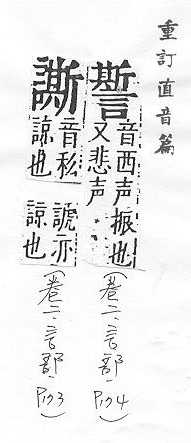 重訂直音篇
音西声振也
又悲声
(巻二、言部、P74)
音私諒也
號亦諒也
(巻二、言部、P73)